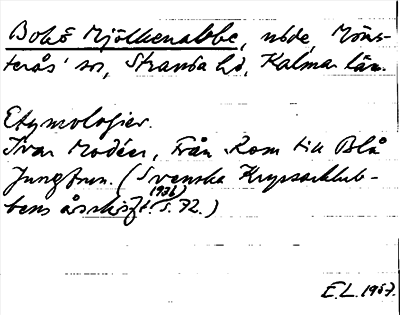 Bokö Mjölkenabbe, nöde, Möns-
terås' sn, Stranda hd, Kalmar län.
Etymologier.
Ivar Modéer, Från Rom till Blå
Jungfrun. (Svenska Kryssarklub-
bens årsskrift. 1936 s. 72.)
E.L. 1957.